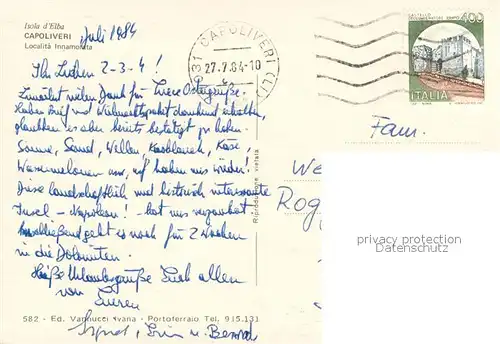 Isola d'Elba
CAPOLIVERI
Località Innamorata
Juli 1984
Ihr Lieben 2-3-4!
Zunächst vielen Dank für Eure Ostergrüße.
Haben Brief und Weihnachtspaket dankend erhalten,
glaubten es aber bereits bestätigt zu haben.
Sonne, Sand, Wellen, Knoblauch, Käse,
Wassermelonen usw. auf haben uns wieder!
Diese landschaftlich und historisch interessante
Insel - Napoleon! - hat uns verzaubert.
Anschließend geht es noch für 2 Wochen
in die Dolomiten.
Heiße Urlaubsgrüße Euch allen
von
Eueren
u.
582 - Ed. Vannucci Ivana - Portoferraio Tel. 915.131
Riproduzione vietata
CAPOLIVERI (LI)
27.7.84-10
CASTELLO
400
ITALIA
Fam.
We
Rog
privacy protection
Datenschutz